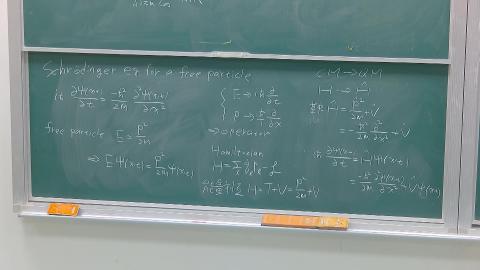 Schrödinger eq for a free particle
iħ ∂Ψ(x,t)/∂t = -ħ²/2m ∂²Ψ(x,t)/∂x²
free particle E = p²/2m
⇒ EΨ(x,t) = p²/2m Ψ(x,t)
E → iħ ∂/∂t
p → ħ/i ∂/∂x
→ operator
Hamiltonian
H = T + V = p²/2m + V
CM → QM
H → Ĥ
Ĥ = p̂²/2m + V̂
= -ħ²/2m ∂²/∂x² + V̂
iħ ∂Ψ(x,t)/∂t = ĤΨ(x,t)
= -ħ²/2m ∂²Ψ(x,t)/∂x² + V̂Ψ(x,t)